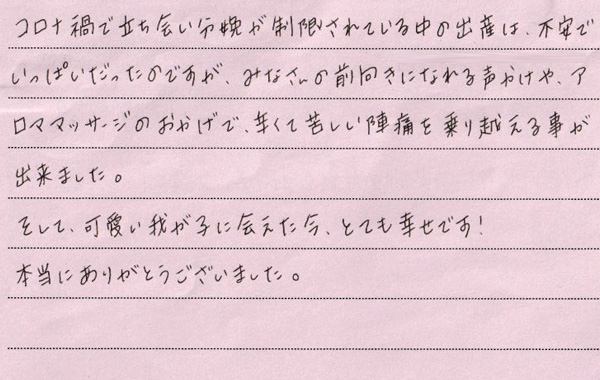 コロナ禍で立ち会い分娩が制限されている中の出産は、不安で
いっぱいだったのですが、みなさんの前向きになれる声かけや、ア
ロママッサージのおかげで、辛くて苦しい陣痛を乗り越える事が
出来ました。
そして、可愛い我が子に会えた今、とても幸せです!
本当にありがとうございました。